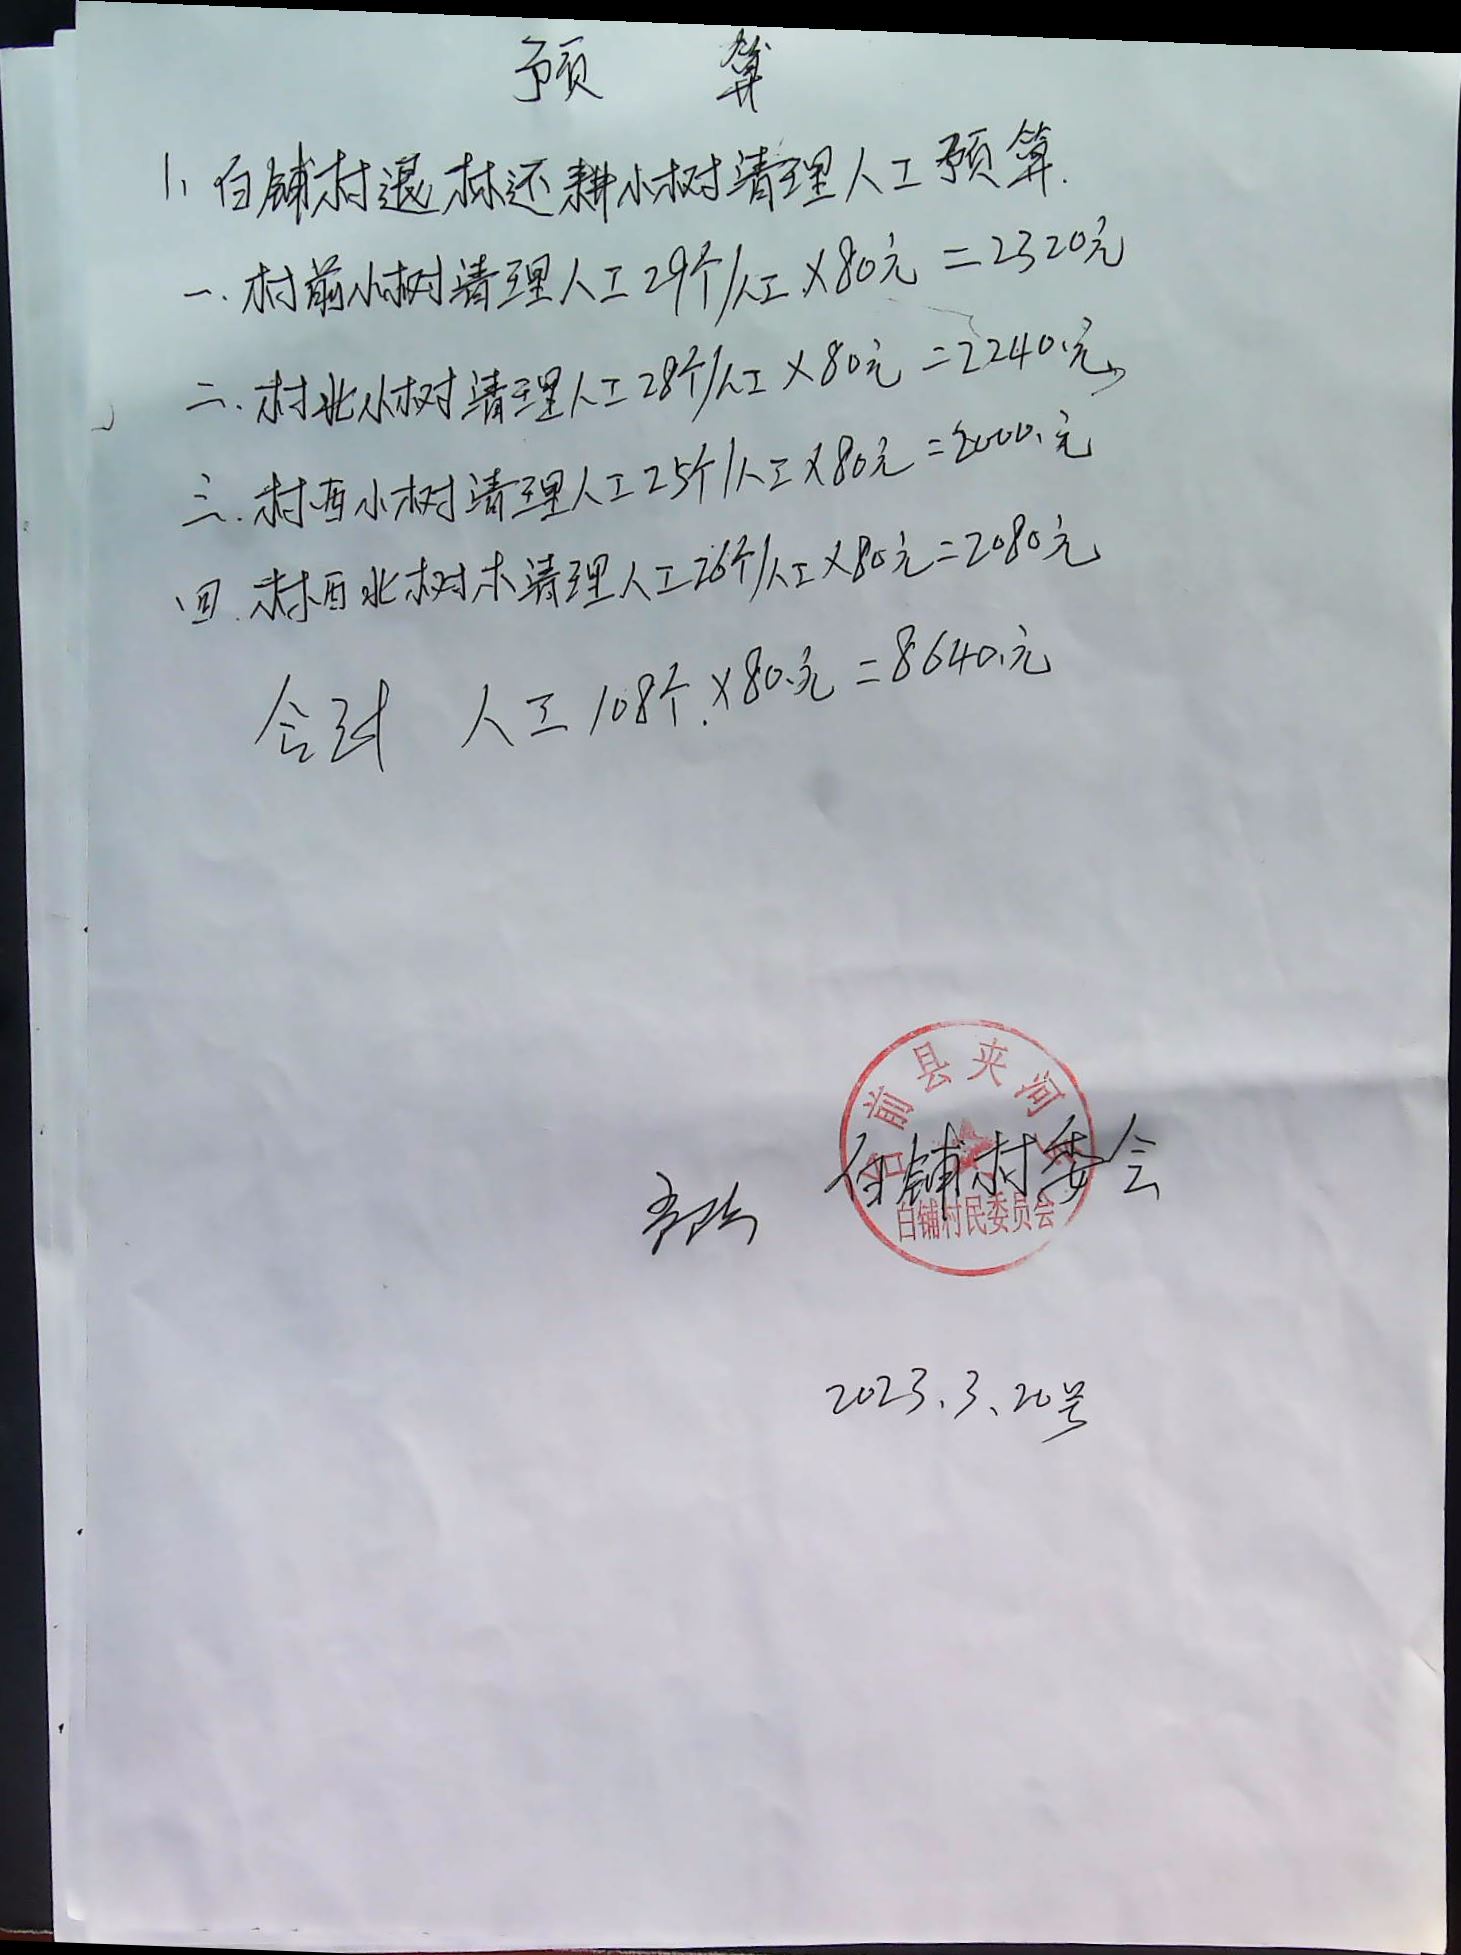 预 算
1、白铺村退林还耕小树清理人工预算.
一.村前小树清理人工29个/人工×80元=2320元
二.村北小树清理人工28个/人工×80元=2240.元
三.村西小树清理人工25个/人工×80元=2000.元
四.村西北树木清理人工26个/人工×80元=2080元
合计 人工108个.×80.元=8640.元
台前县夹河
白铺村委会
白铺村民委员会
2023.3.20号